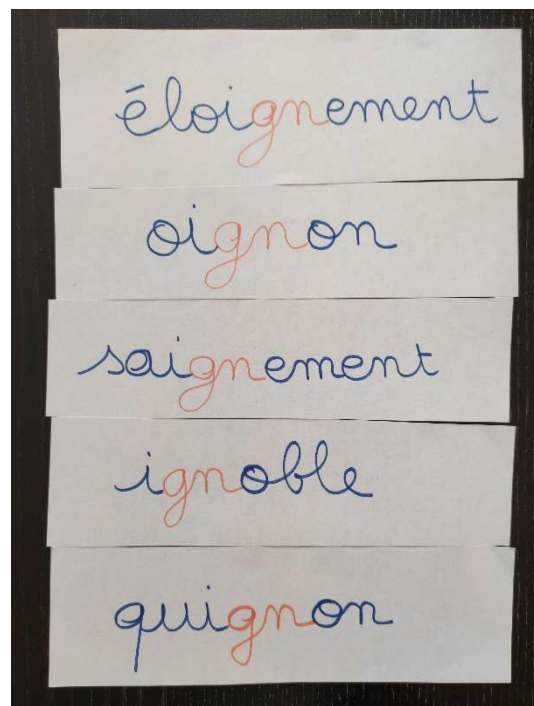 éloignement
oignon
saignement
ignoble
quignon